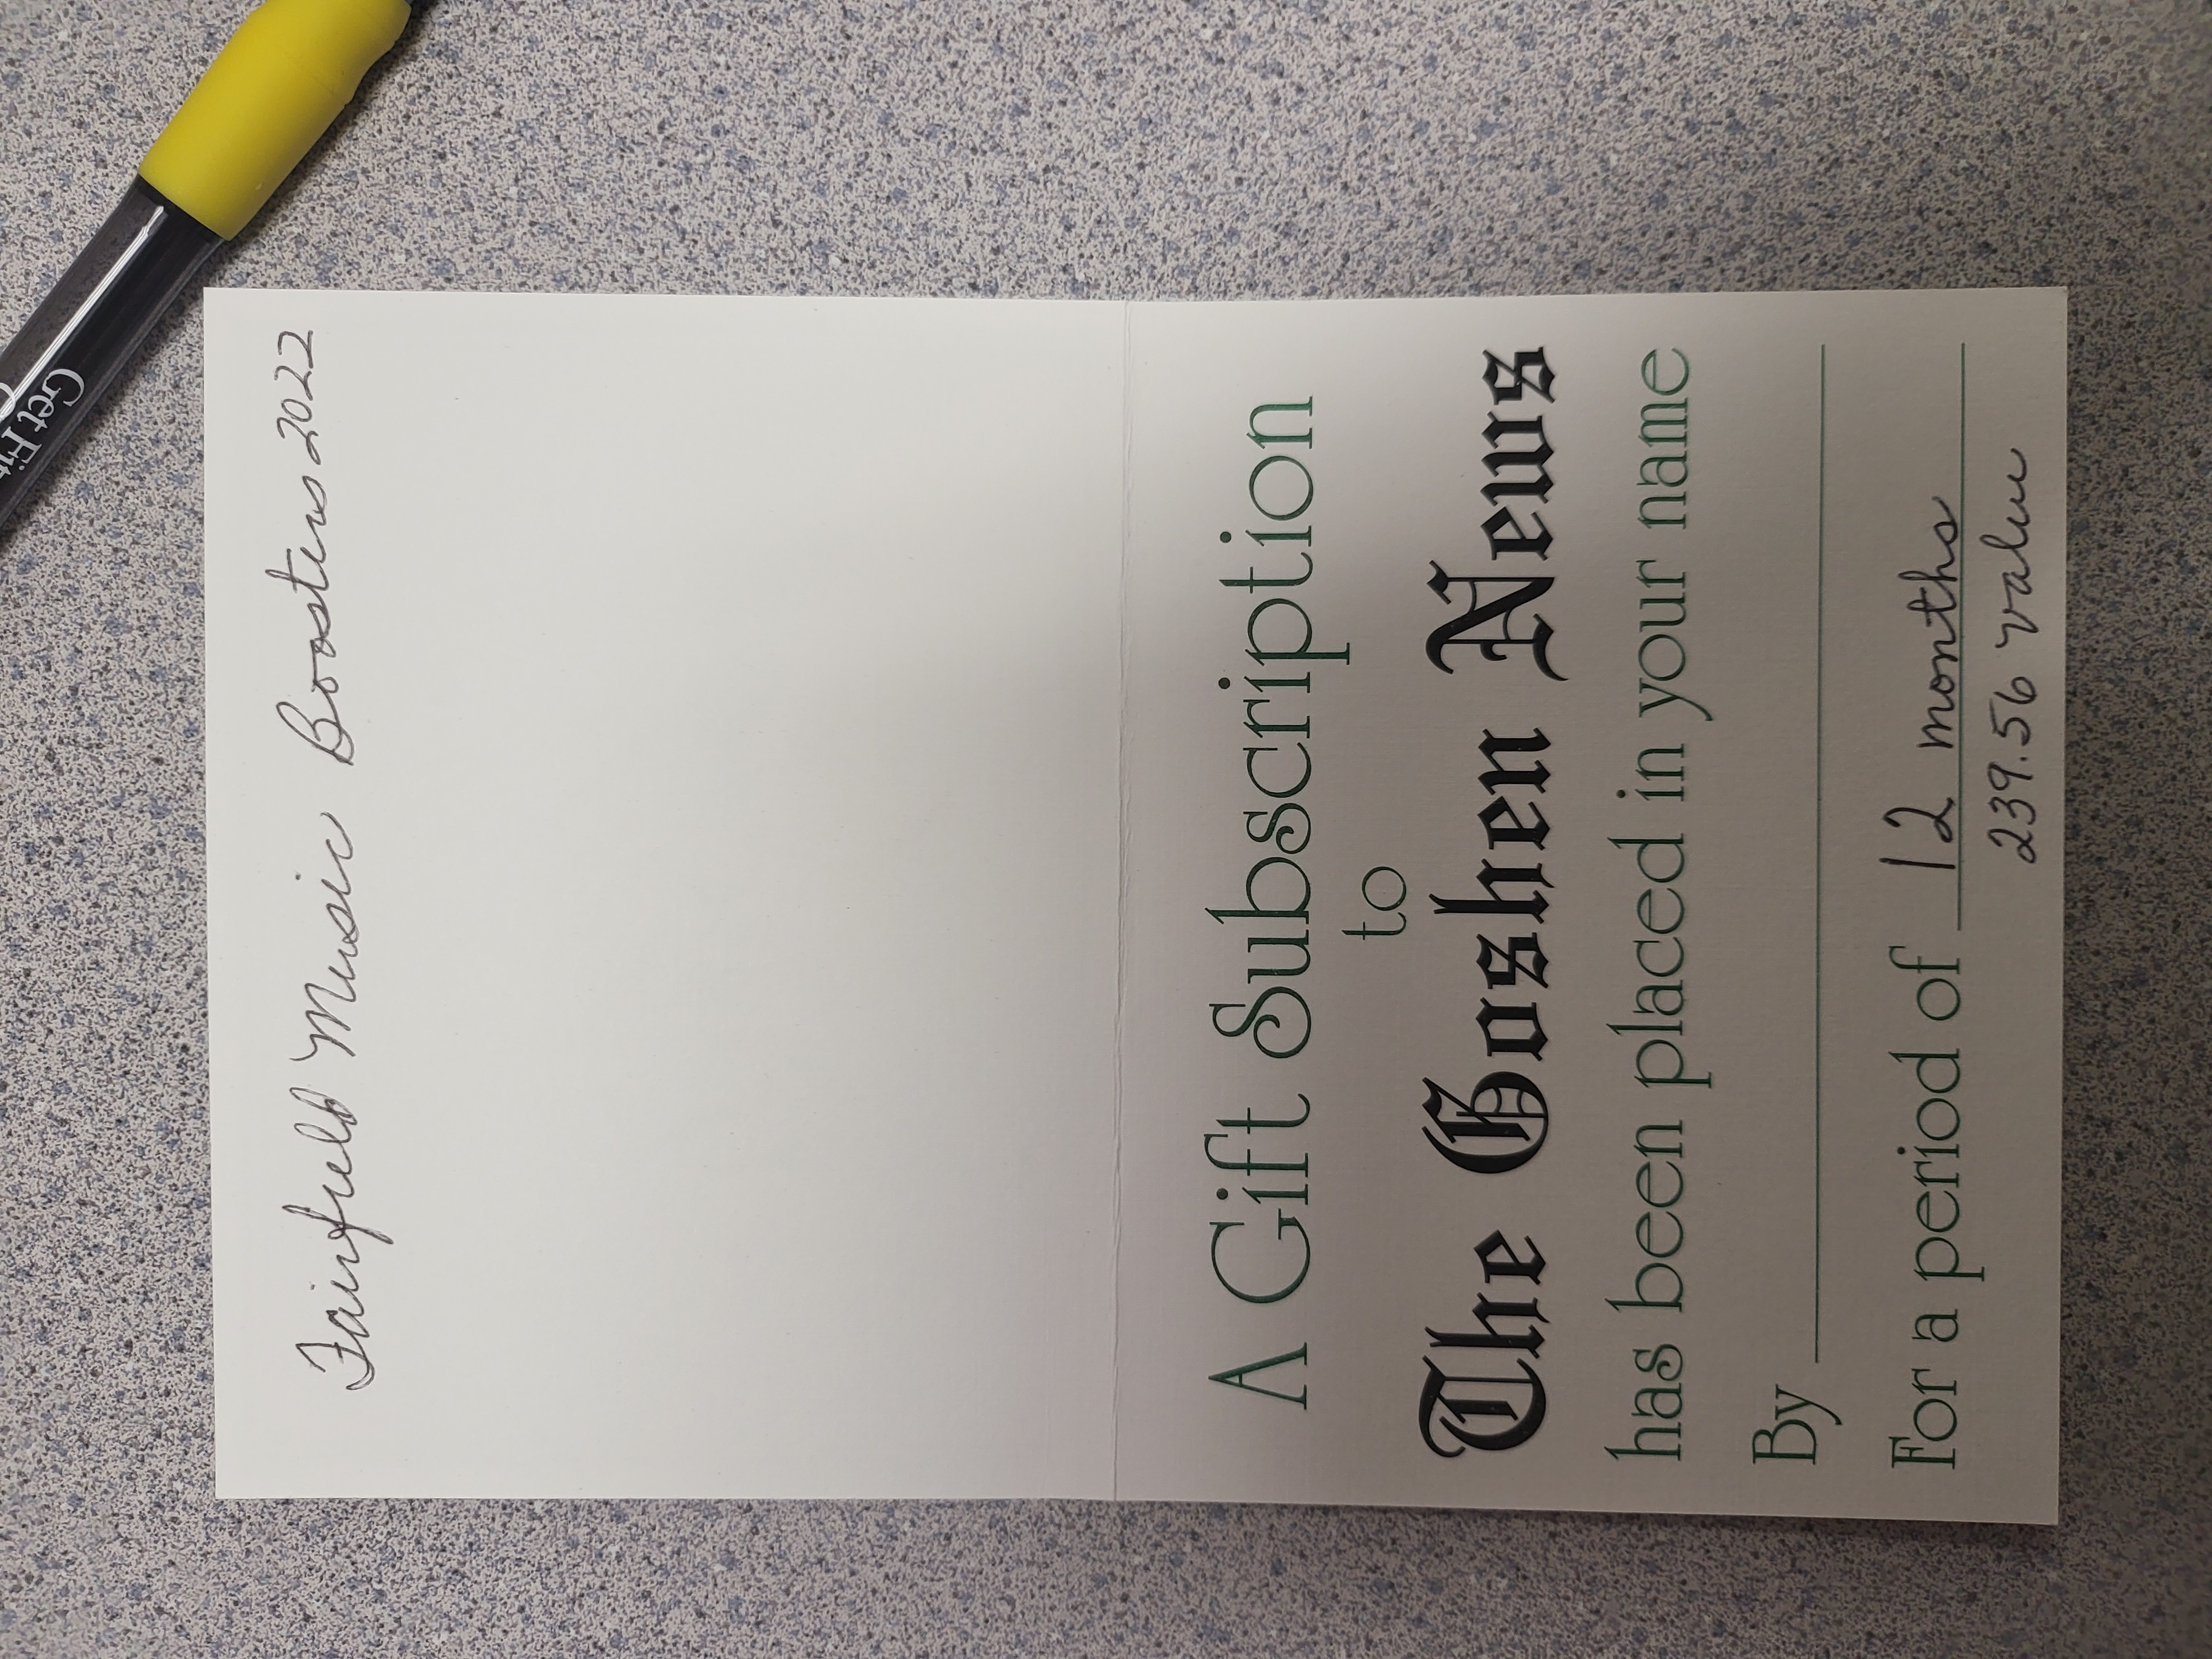 Fairfield Music Boosters 2022
A Gift Subscription
to
The Goshen News
has been placed in your name
By
For a period of 12 months
239.56 value
Get Fit